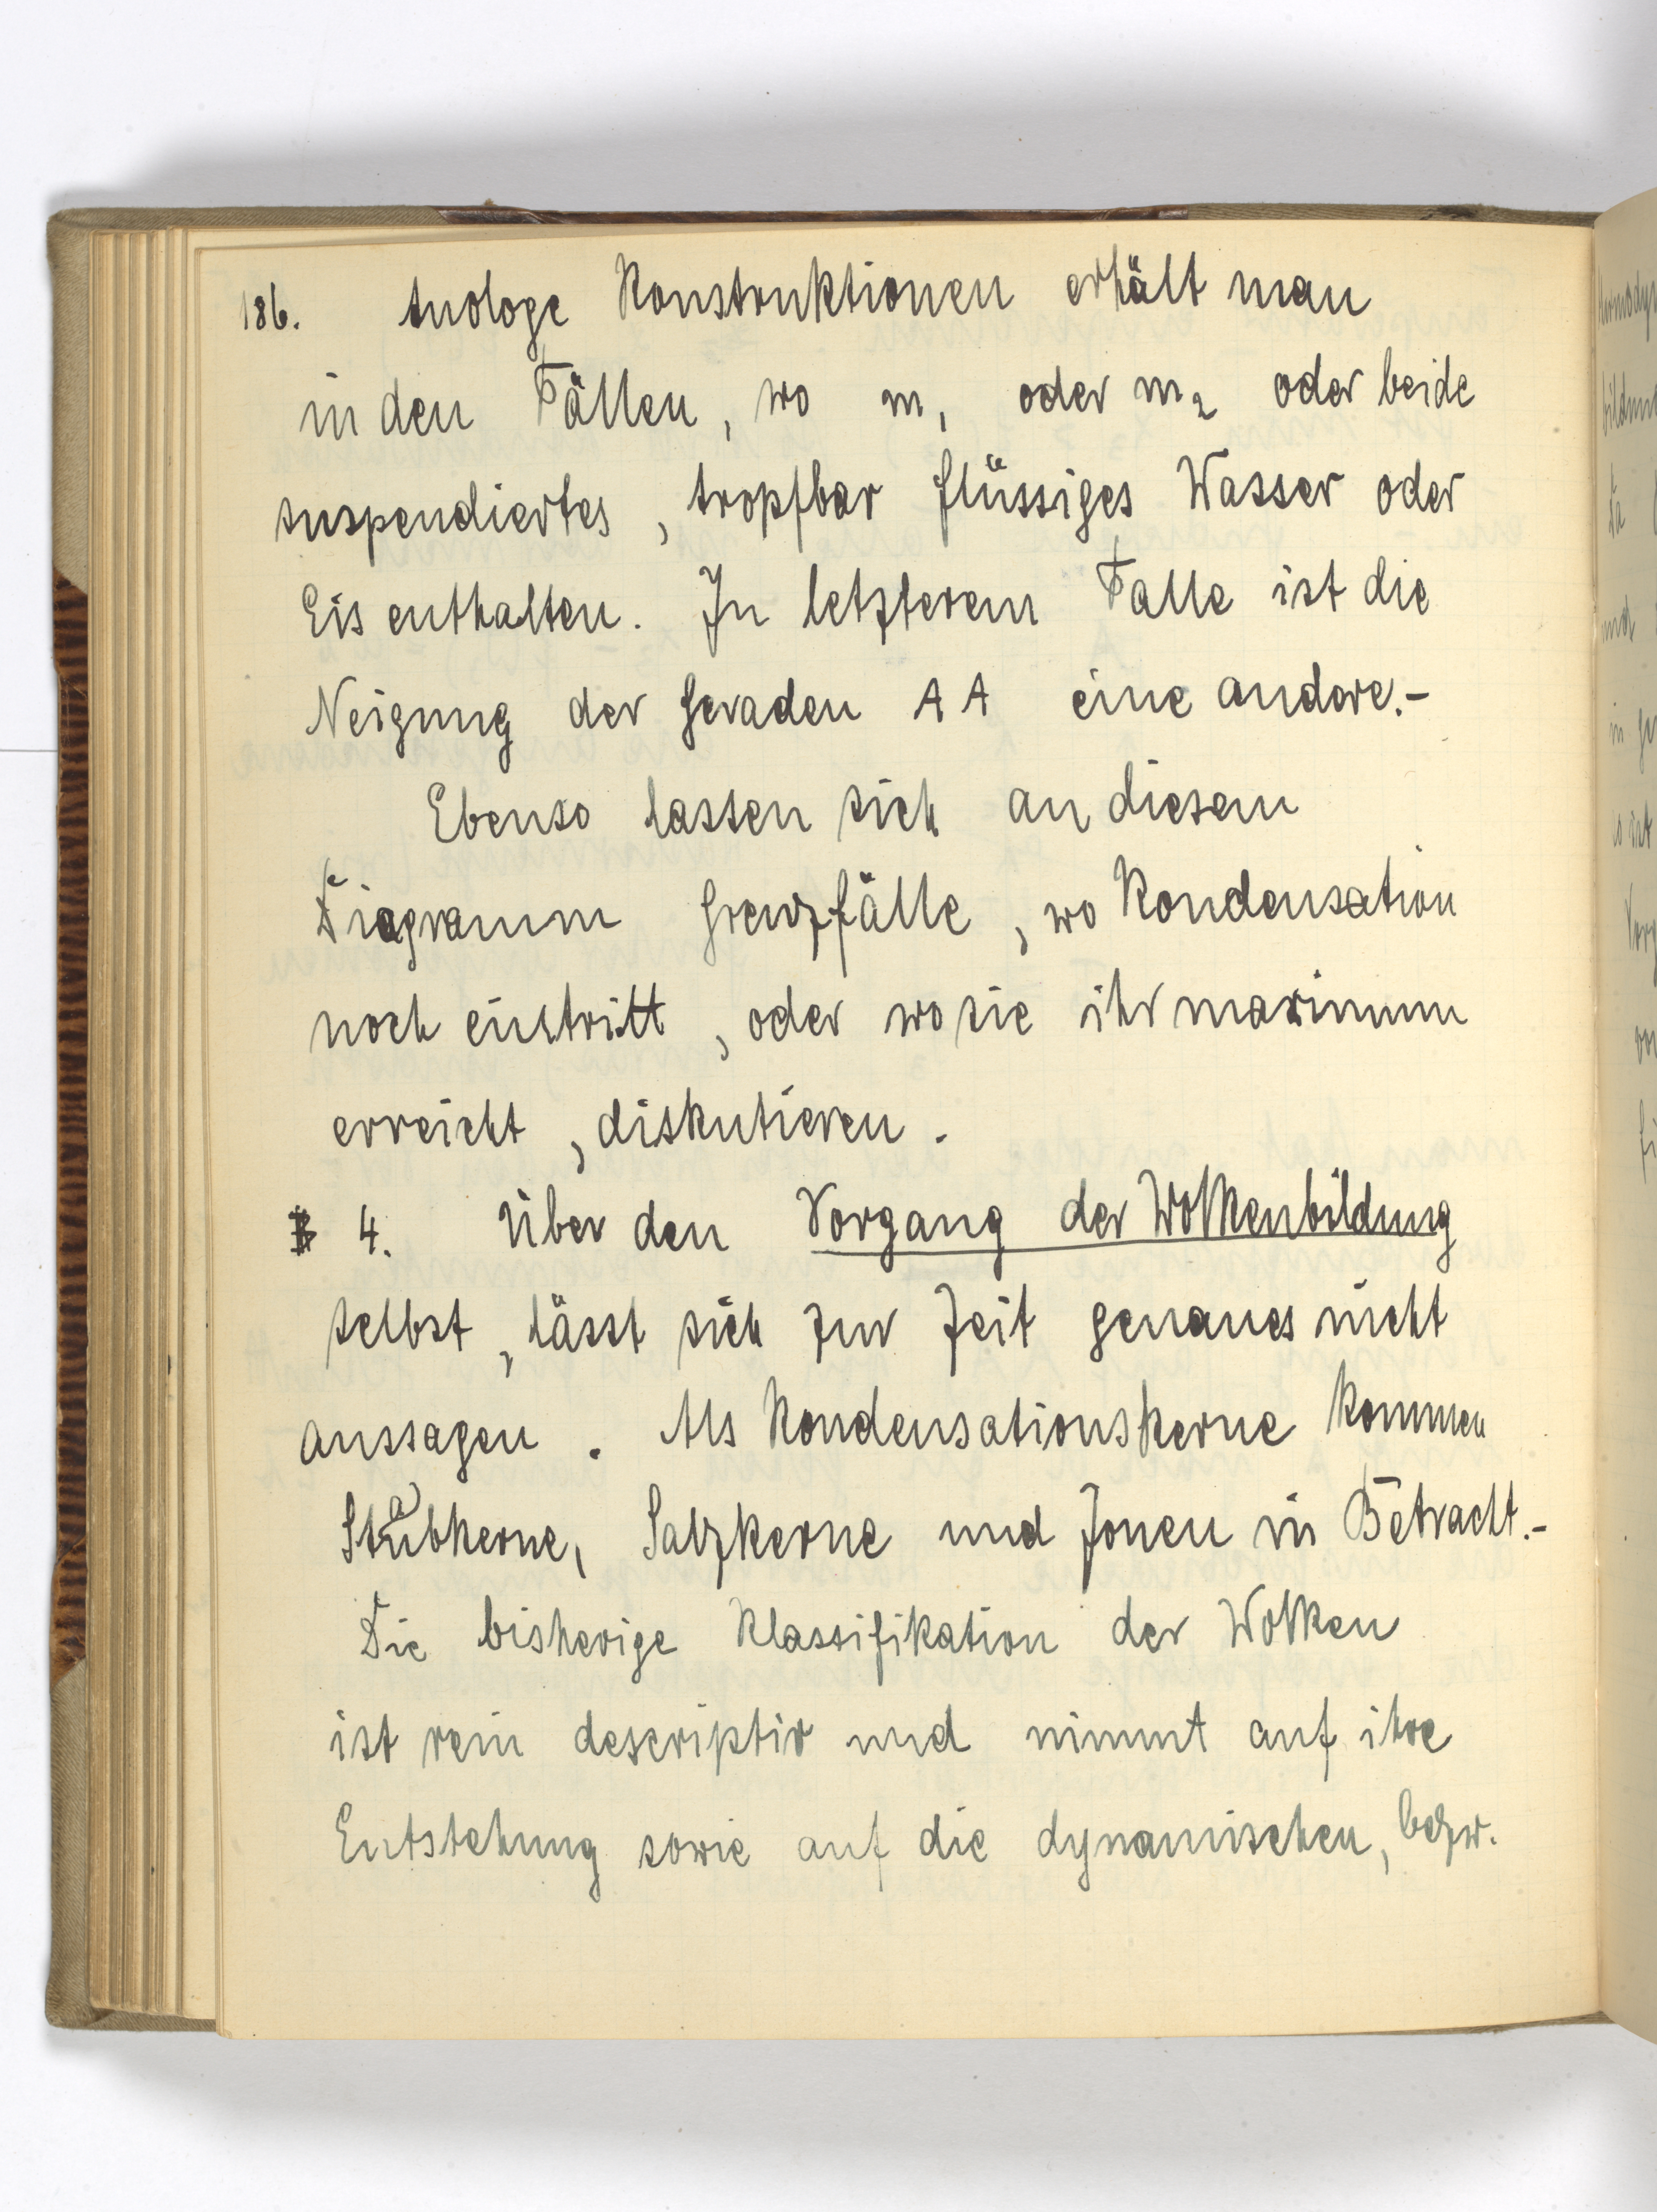 186. Anologe Konstruktionen erhält man
in den Fällen, wo m₁ oder m₂ oder beide
suspendiertes, tropfbar flüssiges Wasser oder
Eis enthalten. In letzterem Falle ist die
Neigung der Geraden A A eine andere.-
Ebenso lassen sich an diesem
Diagramm Grenzfälle, wo Kondensation
noch eintritt, oder wo sie ihr maximum
erreicht, diskutieren.
4. Über den Vorgang der Wolkenbildung
selbst, lässt sich zur Zeit genaues nicht
aussagen. Als Kondensationskerne kommen
Staubkerne, Salzkerne und Jonen in Betracht.-
Die bisherige Klassifikation der Wolken
ist rein descriptiv und nimmt auf ihre
Entstehung sowie auf die dynamischen, bezw.